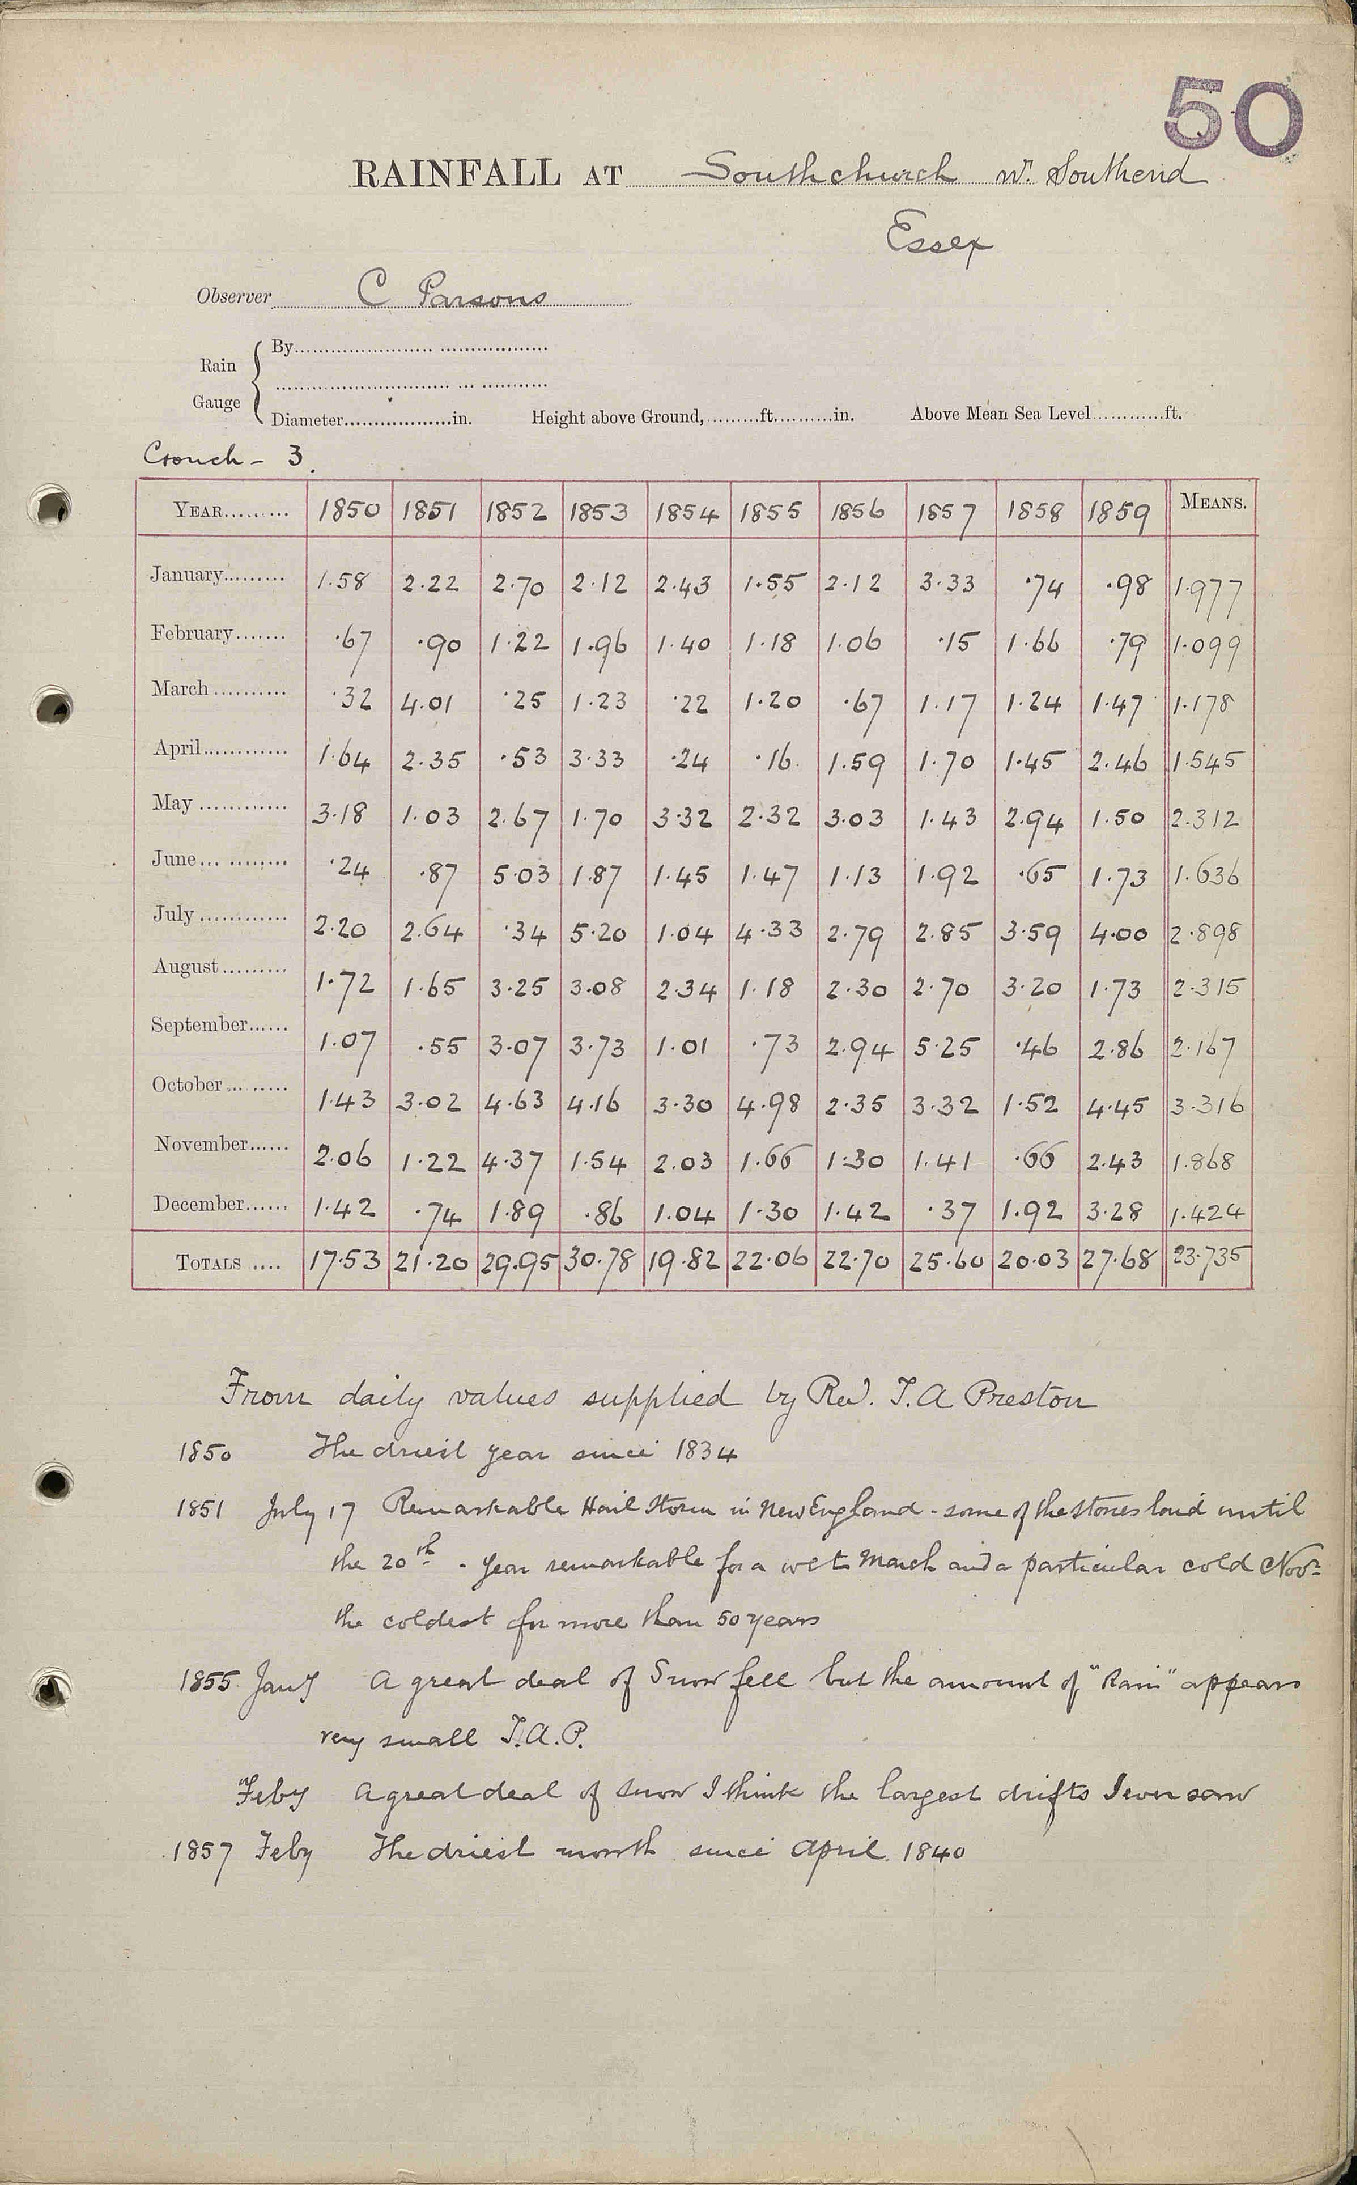 50
RAINFALL AT Southchurch nr. Southend
Essex
Observer C Parsons
Rain Gauge { By
Diameter in. Height above Ground, ft. in. Above Mean Sea Level ft.
Crouch - 3.
YEAR 1850 1851 1852 1853 1854 1855 1856 1857 1858 1859 MEANS.
January 1.58 2.22 2.70 2.12 2.43 1.55 2.12 3.33 .74 .98 1.977
February .67 .90 1.22 1.96 1.40 1.18 1.06 .15 1.66 .79 1.099
March .32 4.01 .25 1.23 .22 1.20 .67 1.17 1.24 1.47 1.178
April 1.64 2.35 .53 3.33 .24 .16 1.59 1.70 1.45 2.46 1.545
May 3.18 1.03 2.67 1.70 3.32 2.32 3.03 1.43 2.94 1.50 2.312
June .24 .87 5.03 1.87 1.45 1.47 1.13 1.92 .65 1.73 1.636
July 2.20 2.64 .34 5.20 1.04 4.33 2.79 2.85 3.59 4.00 2.898
August 1.72 1.65 3.25 3.08 2.34 1.18 2.30 2.70 3.20 1.73 2.315
September 1.07 .55 3.07 3.73 1.01 .73 2.94 5.25 .46 2.86 2.167
October 1.43 3.02 4.63 4.16 3.30 4.98 2.35 3.32 1.52 4.45 3.316
November 2.06 1.22 4.37 1.54 2.03 1.66 1.30 1.41 .66 2.43 1.868
December 1.42 .74 1.89 .86 1.04 1.30 1.42 .37 1.92 3.28 1.424
TOTALS 17.53 21.20 29.95 30.78 19.82 22.06 22.70 25.60 20.03 27.68 23.735
From daily values supplied by Rev. T. A Preston
1850 The driest year since 1834
1851 July 17 Remarkable Hail Storm in New England - some of the stones laid until
the 20th - Year remarkable for a wet March and a particular cold Novr
the coldest for more than 50 years
1855 Jany A great deal of Snow fell but the amount of "Rain" appears
very small T.A.P.
Feby A great deal of snow I think the largest drifts I ever saw
1857 Feby The driest month since April 1840